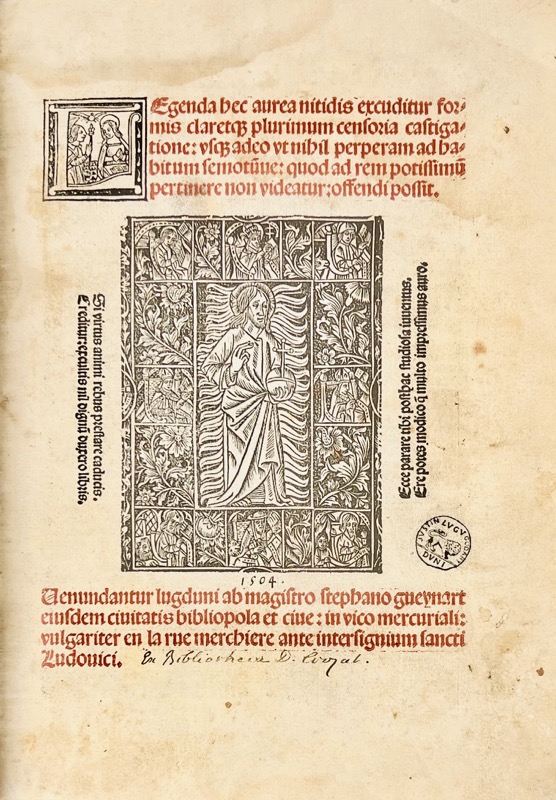 Legenda hec aurea nitidis excuditur for⸗
mis claretqꝫ plurimum censoria castiga⸗
tione: vsqꝫ adeo vt nihil perperam ad ha⸗
bitum semotũve: quod ad rem potissimũ
pertinere non videatur: offendi possit.
Si virtus animi rebus prestare caducis.
Ecce parare tibi posthac studiosa iuuentus.
Ere potes modico q̃ multo impressimus auro.
1504.
Uenundantur lugduni ab magistro stephano gueynart
eiusdem ciuitatis bibliopola et ciue: in vico mercuriali:
vulgariter en la rue merchiere ante intersignium sancti
Ludouici.
Ex Bibliotheca D.